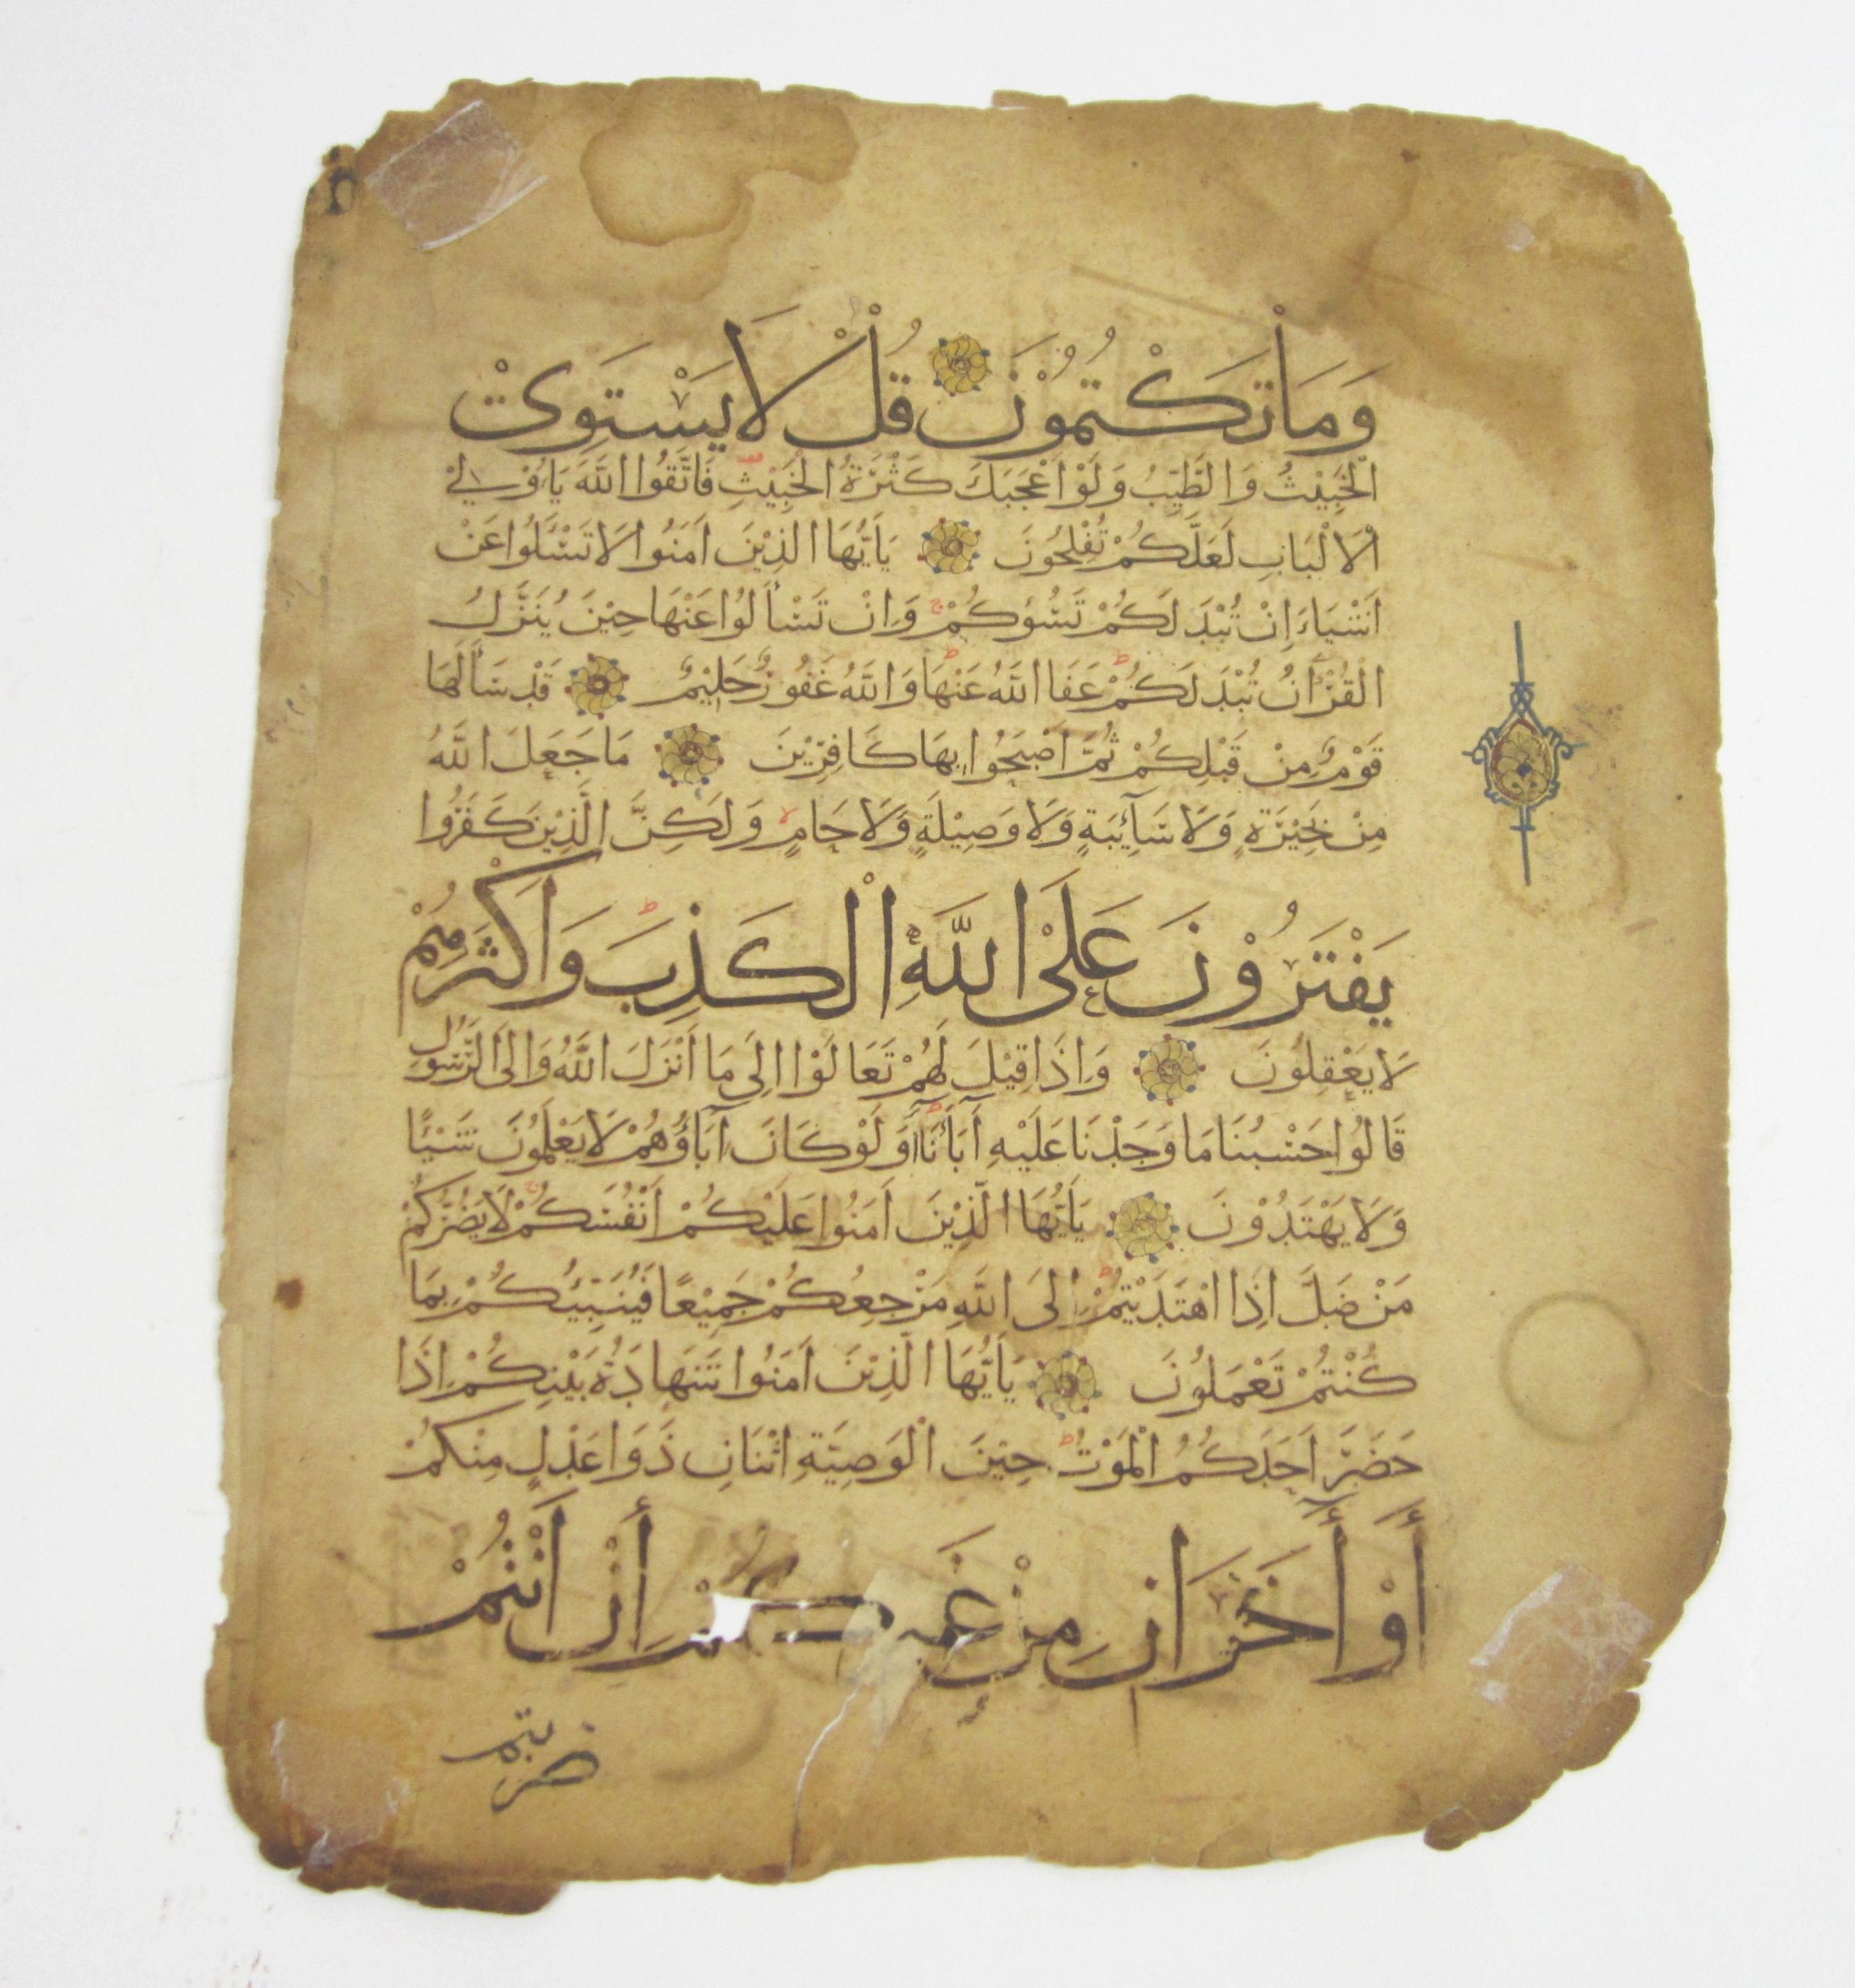 وَمَا تَكْتُمُوْنَ قُلْ لَا يَسْتَوِيْ
الْخَبِيْثُ وَالطَّيِّبُ وَلَوْ اَعْجَبَكَ كَثْرَةُ الْخَبِيْثِ فَاتَّقُوا اللّٰهَ يَا اُوْلِيْ
الْاَلْبَابِ لَعَلَّكُمْ تُفْلِحُوْنَ يَا اَيُّهَا الَّذِيْنَ اٰمَنُوا لَا تَسْئَلُوا عَنْ
اَشْيَاءَ اِنْ تُبْدَ لَكُمْ تَسُؤْكُمْ وَاِنْ تَسْأَلُوا عَنْهَا حِيْنَ يُنَزَّلُ
الْقُرْاٰنُ تُبْدَ لَكُمْ عَفَا اللّٰهُ عَنْهَا وَاللّٰهُ غَفُوْرٌ حَلِيْمٌ قَدْ سَأَلَهَا
قَوْمٌ مِنْ قَبْلِكُمْ ثُمَّ اَصْبَحُوا بِهَا كَافِرِيْنَ مَا جَعَلَ اللّٰهُ
مِنْ بَحِيْرَةٍ وَلَا سَآئِبَةٍ وَلَا وَصِيْلَةٍ وَلَا حَامٍ وَلَكِنَّ الَّذِيْنَ كَفَرُوا
يَفْتَرُوْنَ عَلَى اللّٰهِ الْكَذِبَ وَاَكْثَرُهُمْ
لَا يَعْقِلُوْنَ وَاِذَا قِيْلَ لَهُمْ تَعَالَوْا اِلَى مَا اَنْزَلَ اللّٰهُ وَاِلَى الرَّسُوْلِ
قَالُوا حَسْبُنَا مَا وَجَدْنَا عَلَيْهِ آبَاءَنَا اَوَلَوْ كَانَ آبَاؤُهُمْ لَا يَعْلَمُوْنَ شَيْئًا
وَلَا يَهْتَدُوْنَ يَا اَيُّهَا الَّذِيْنَ اٰمَنُوا عَلَيْكُمْ اَنْفُسَكُمْ لَا يَضُرُّكُمْ
مَنْ ضَلَّ اِذَا اهْتَدَيْتُمْ اِلَى اللّٰهِ مَرْجِعُكُمْ جَمِيْعًا فَيُنَبِّئُكُمْ بِمَا
كُنْتُمْ تَعْمَلُوْنَ يَا اَيُّهَا الَّذِيْنَ اٰمَنُوا شَهَادَةُ بَيْنِكُمْ اِذَا
حَضَرَ اَحَدَكُمُ الْمَوْتُ حِيْنَ الْوَصِيَّةِ اثْنَانِ ذَوَا عَدْلٍ مِنْكُمْ
أَوْ أَخَرَانِ مِنْ إِنْ أَنْتُمْ
ضربتم